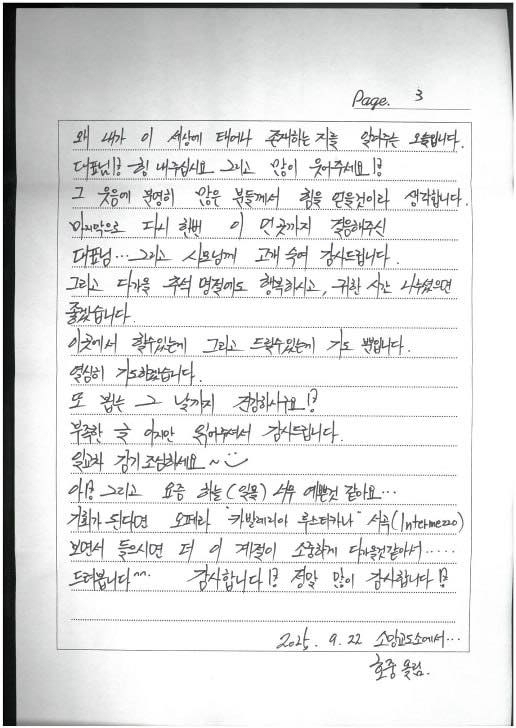 Page. 3
왜 내가 이 세상에 태어나 존재하는지를 알려주는 오늘입니다.
대표님!? 힘 내주십시요 그리고 많이 웃어주세요!?
그 웃음에 분명히 많은 분들께서 힘을 얻을것이라 생각합니다.
마지막으로 다시 한번 이 먼곳까지 걸음해주신
대표님... 그리고 사모님께 고개 숙여 감사드립니다.
그리고 다가올 추석 명절에도 행복하시고, 귀한 시간 나누셨으면
좋겠습니다.
이곳에서 할수있는게 그리고 드릴수있는게 기도 뿐입니다.
열심히 기도하겠습니다.
또 뵙는 그 날까지 건강하시구요!?
부족한 글 이지만 읽어주셔서 감사드립니다.
일교차 감기조심하세요~
아!? 그리고 요즘 하늘(일몰) 너무 예쁜것 같아요...
기회가 된다면 오페라 "카발레리아 루스티카나" 서곡(Intermezzo)
보면서 들으시면 더 이 계절이 소중하게 다가올것같아서.....
드려봅니다^^ 감사합니다!? 정말 많이 감사합니다!?
2025. 9. 22 소망교도소에서...
호중 올림.